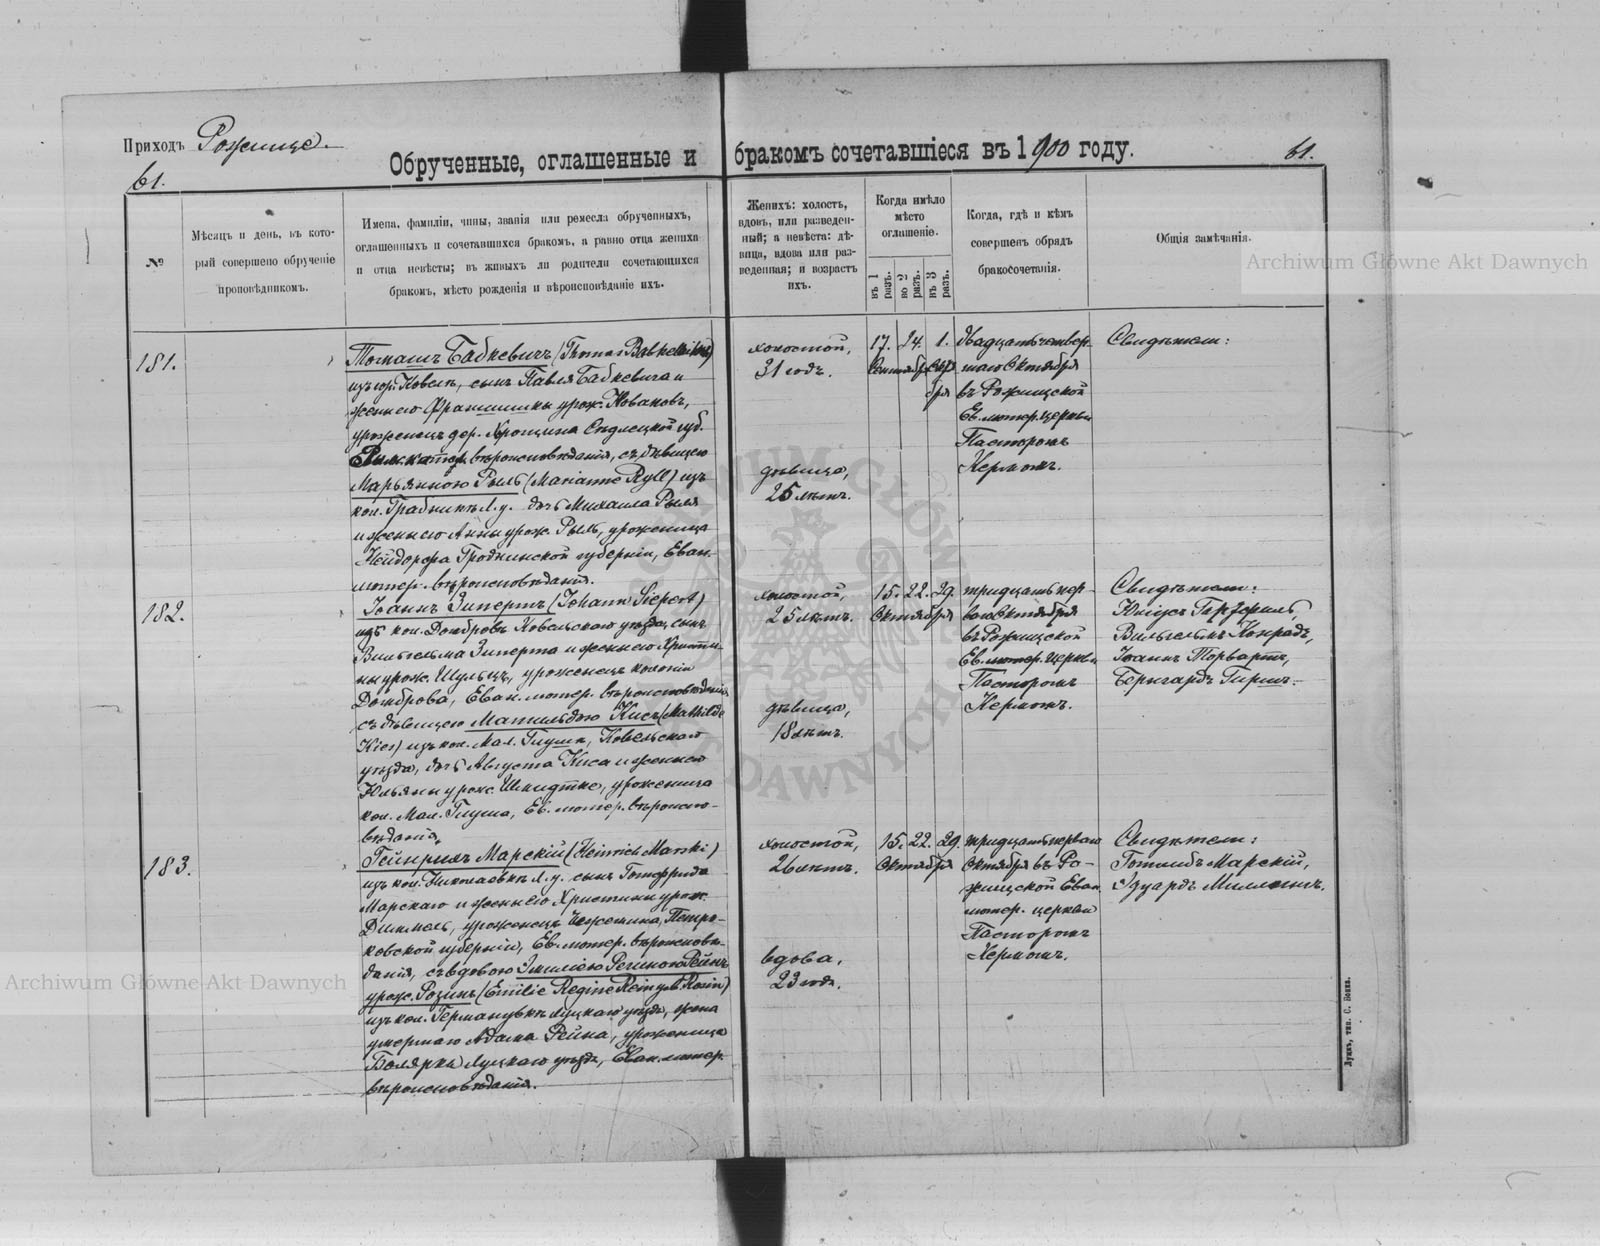 Приходъ Рожище.
Обрученные, оглашенные и бракомъ сочетавшіеся въ 1900 году.
61.
61.
№
Мѣсяцъ и день, въ кото-
рый совершено обрученіе
проповѣдникомъ.
Имена, фамиліи, чины, званія или ремесла обрученныхъ,
оглашенныхъ и сочетавшихся бракомъ, а равно отца жениха
и отца невѣсты; въ живыхъ ли родители сочетающихся
бракомъ, мѣсто рожденія и вѣроисповѣданіе ихъ.
Женихъ: холостъ,
вдовъ, или разведен-
ный; а невѣста: дѣ-
вица, вдова или раз-
веденная; и возрастъ
ихъ.
Когда имѣло
мѣсто
оглашеніе.
въ 1
разъ.
во 2
разъ.
въ 3
разъ.
Когда, гдѣ и кѣмъ
совершенъ обрядъ
бракосочетанія.
Общія замѣчанія.
181.
Томашъ Бабкевичъ (Thomas Babkewicz)
изъ гор. Ковель, сынъ Павла Бабкевича и
жены его Франциски урож. Новаковъ,
уроженецъ дер. Сѣдлецкой губ.
Римск. катол. вѣроисповѣданія, съ дѣвицею
Марьянною Рыль (Marianne Ryll) изъ
кол. Грабникъ Л. у. дочь Михаила Рыля
и жены его Анны урож. Рыль, уроженица
Нейдорфа Гродненской губерніи, Еван.
лютер. вѣроисповѣданія.
холостой,
31 годъ.
дѣвица,
25 лѣтъ.
17. 24. 1.
Сентября Октя-
бря
двадцать четвер-
таго Октября
въ Рожищской
Ев. лютер. церкви
Пасторомъ
Керномъ.
Свидѣтели:
182.
Іоаннъ Зипертъ (Johann Siepert)
изъ кол. Домброва Ковельскаго уѣзда, сынъ
Вильгельма Зиперта и жены его Христи-
ны урож. Шульцъ, уроженецъ колоніи
Домброва, Еван. лютер. вѣроисповѣданія,
съ дѣвицею Матильдою Кисъ (Mathilde
Kies) изъ кол. Мал. Глуша, Ковельскаго
уѣзда, дочь Августа Киса и жены его
Юльяны урож. Шмидтке, уроженица
кол. Мал. Глуша, Ев. лютер. вѣроиспо-
вѣданія.
холостой,
25 лѣтъ.
дѣвица,
18 лѣтъ.
15. 22. 29.
Октября
тридцать пер-
ваго Октября
въ Рожищской
Ев. лютер. церкви
Пасторомъ
Керномъ.
Свидѣтели:
Юліусъ
Вильгельмъ Конрадъ,
Іоаннъ Торвартъ,
Бернгардъ Гиршъ.
183.
Гейнрихъ Марскій (Heinrich Marski)
изъ кол. Николаевкъ Л. у. сынъ Готфрида
Марскаго и жены его Христины урож.
Диммель, уроженецъ Петро-
ковской губерніи, Ев. лютер. вѣроисповѣ-
данія, съ вдовою Эмиліею Региною Рейнъ
урож. Розинъ (Emilie Regine Rein geb. Rosin)
изъ кол. Германувкъ Луцкаго уѣзда, жена
умершаго Адама Рейна, уроженица
Боляркъ Луцкаго уѣзда, Еван. лютер.
вѣроисповѣданія.
холостой,
26 лѣтъ.
вдова,
23 года.
15. 22. 29.
Октября
тридцать перваго
Октября въ Ро-
жищской Еван.
лютер. церкви
Пасторомъ
Керномъ.
Свидѣтели:
Готлибъ Марскій,
Эдуардъ
Луцкъ, тип. С. Бонка.
Archiwum Główne Akt Dawnych
Archiwum Główne Akt Dawnych
ARCHIWUM GŁÓWNE AKT DAWNYCH